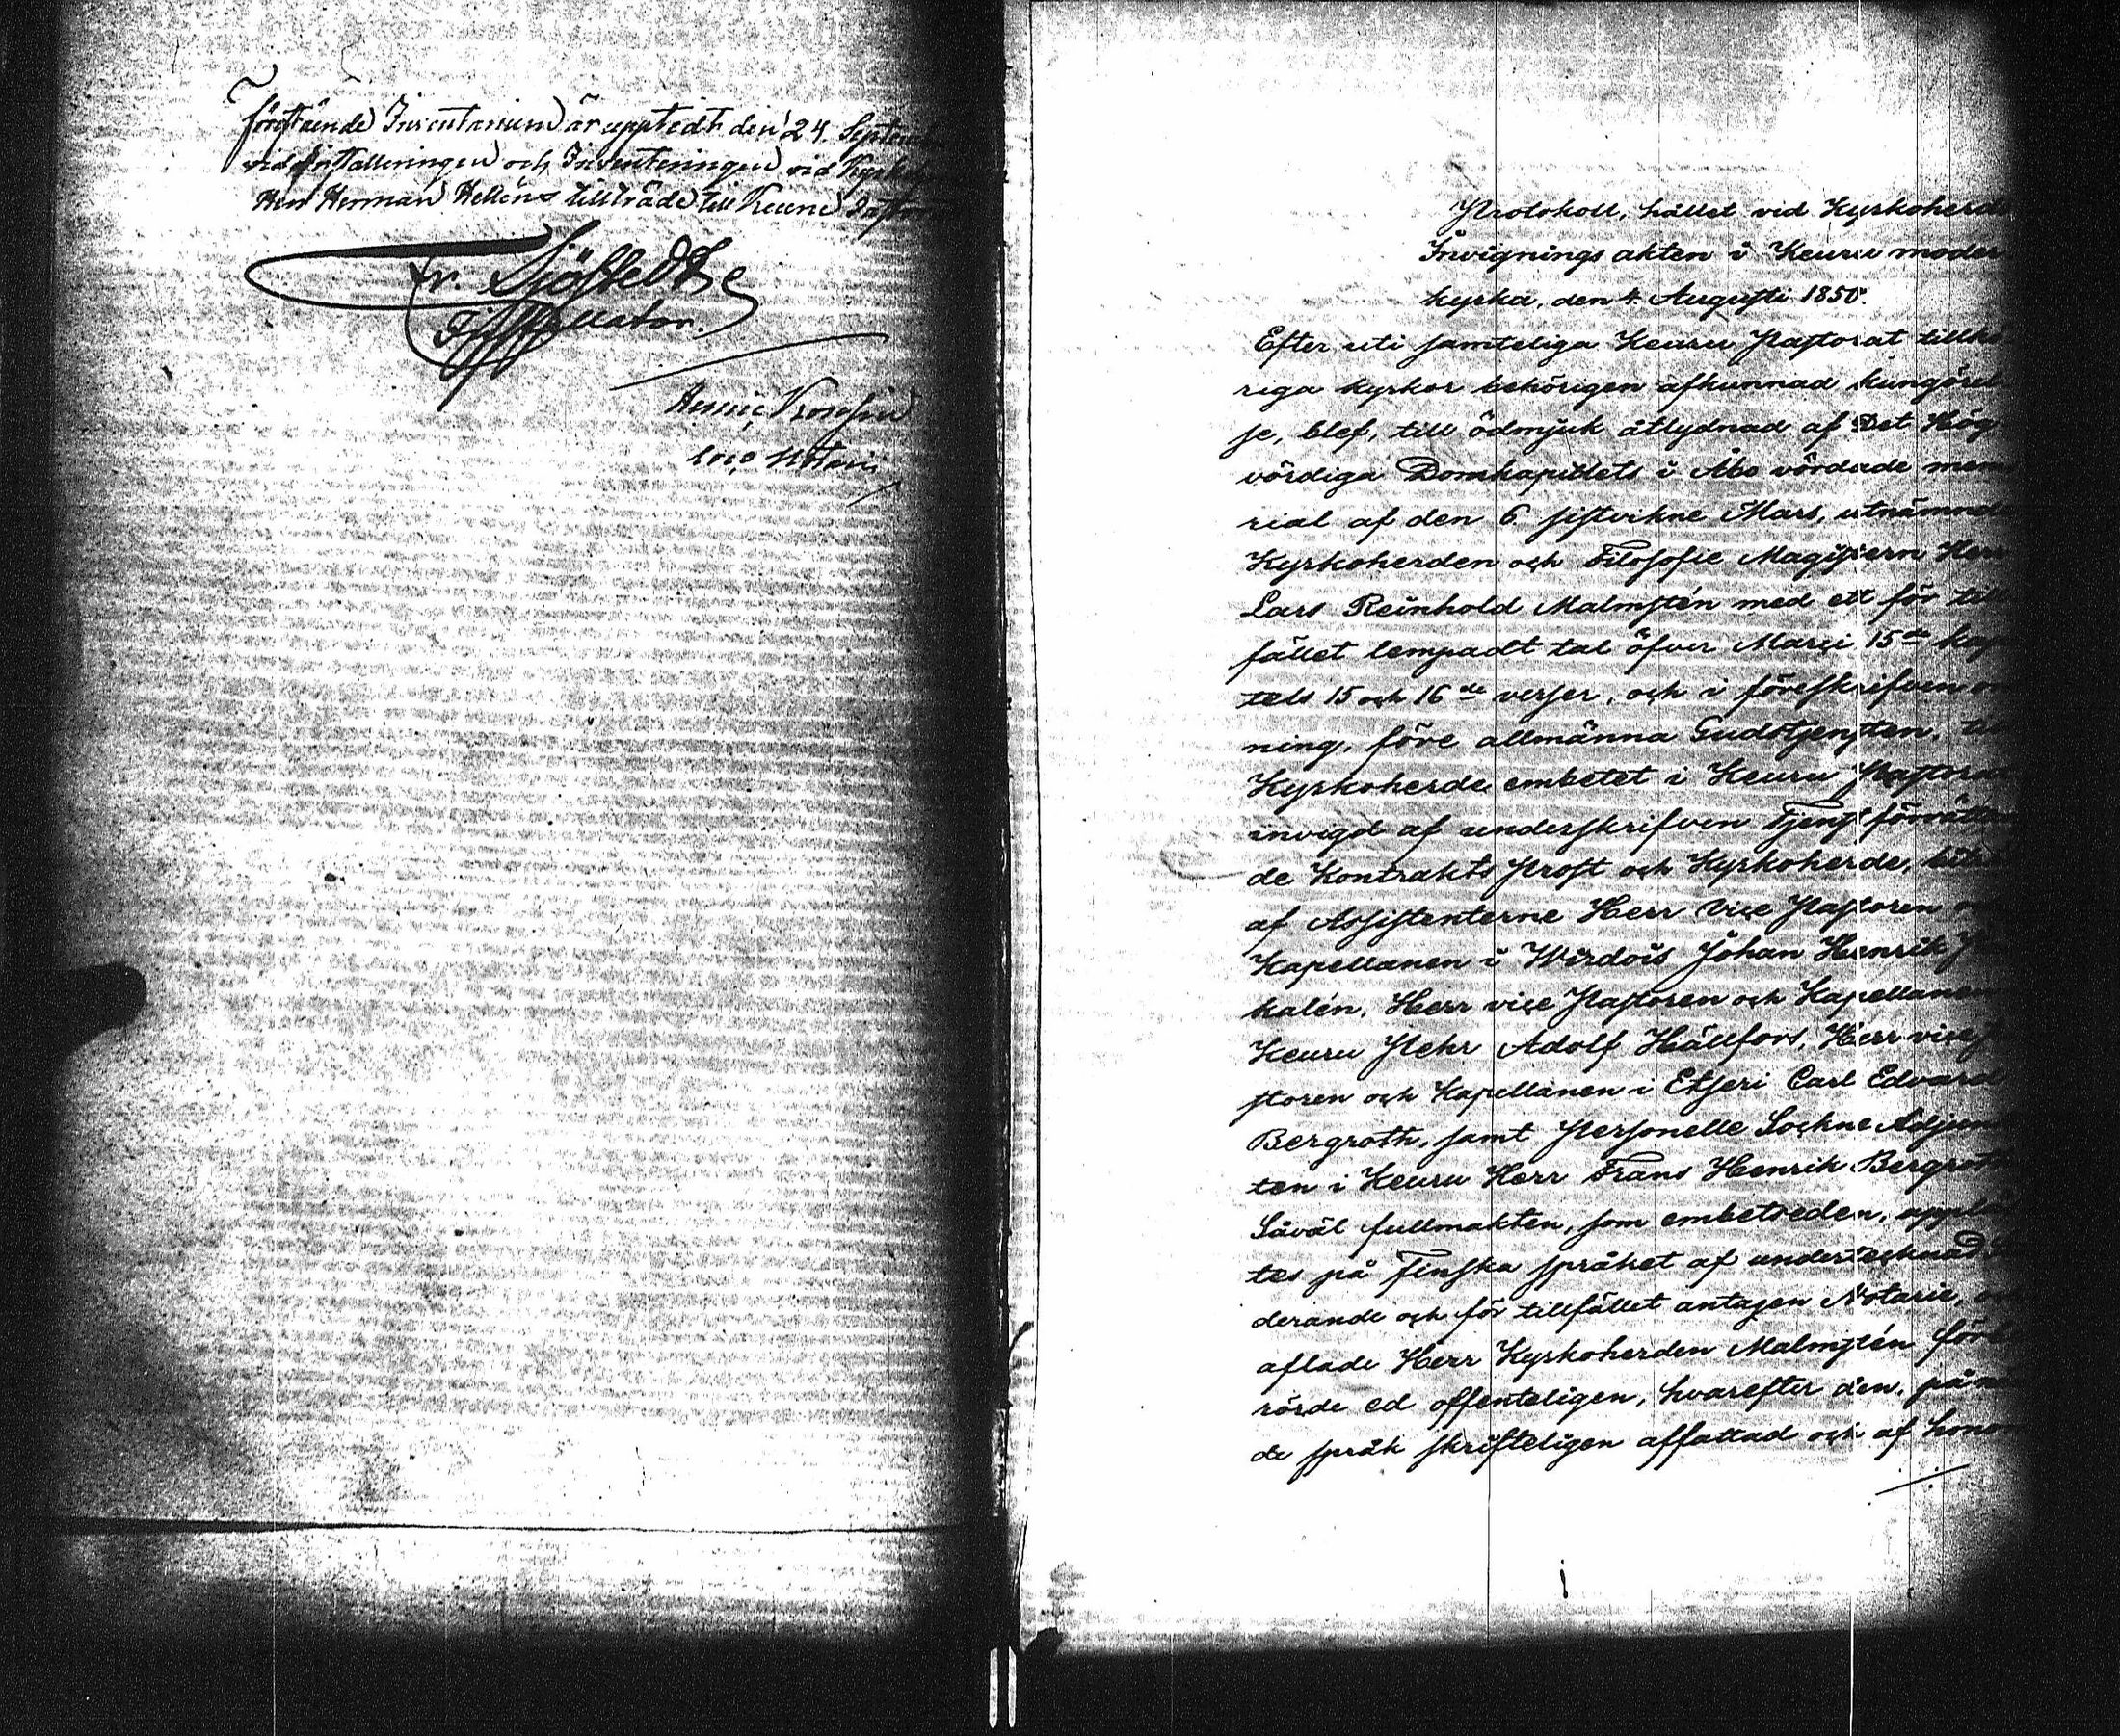 förestående Inventarium är upptedt den 24. Septemb
vid Installeringen och Inventeringen vid Kyrkoh
Herr Herman Helléns tillträde till Keuru Pastor
Fr. Sjöstedt
Installator.
loco Notarii
Protokoll, hållet vid Kyrkoherde
Invignings akten i Keuru moder
kyrka, den 4 Augusti 1850.
Efter uti samteliga Keuru Pastorat tillhö
riga kyrkor behörigen afkunnad kungörel
se, blef, till ödmjuk åtlydnad af Det Hög
vördiga Domkapitlets i Åbo vördade mem
rial af den 6 sistvikne Mars, utnämnde
Kyrkoherden och Filosofie Magistern Herr
Lars Reinhold Malmstén med ett för till
fället lempadt tal öfver Marci 15de kapi
tels 15 och 16de verser, och i föreskrifven ord
ning, före allmänna Gudstjensten, till
Kyrkoherde embetet i Keuru Pastorat
invigd af underskrifven Tjenst förrättan
de Kontrakts Prost och Kyrkoherde, biträdd
af Assistenterne Herr Vice Pastoren och
Kapellanen i Wirdois Johan Henrik
kalén, Herr vice Pastoren och Kapellanen
Keuru Pehr Adolf Hällfors, Herr vice Pa
storen och Kapellanen i Etseri Carl Edvard
Bergroth, samt Personelle Sockne Adjunk
ten i Keuru Herr Frans Henrik Bergroth
Såväl fullmakten, som embetseden, uppläs
tes på Finska språket af undertecknad Stu
derande och för tillfället antagen Notarie, och
aflade Herr Kyrkoherden Malmstén förbe
rörde ed offenteligen, hvarefter den, på näm
de språk skrifteligen affattad och af honom